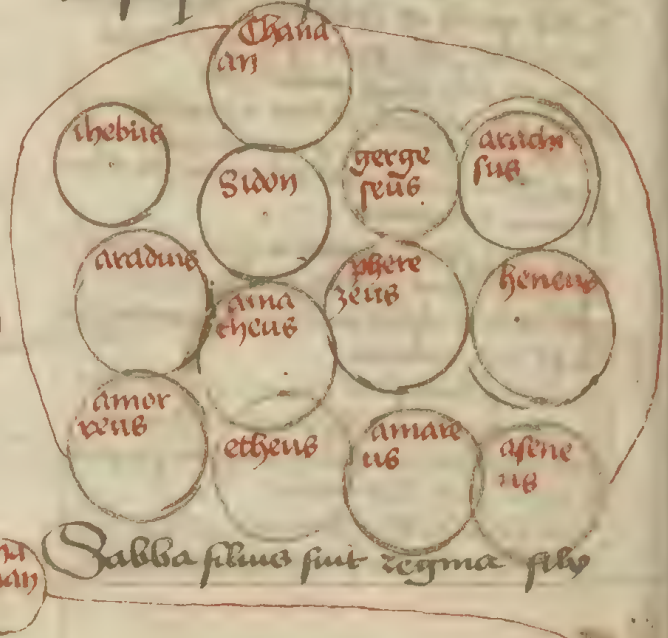 Chana
an
ihebus
Sidon
gerge
seus
arachi
sus
aradius
ama
theus
phere
zeus
heneus
amor
reus
etheus
amare
us
asene
us
Sabba filius fuit regma filij